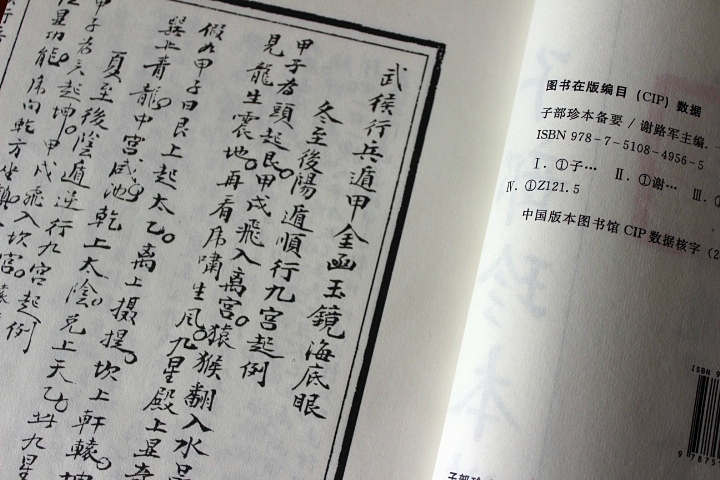 武侯行兵遁甲金函玉鏡海底眼
冬至後陽遁順行九宮起例
甲子為頭起艮。甲戊飛入离宮。猿猴翻入水晶
見龍生震地。再看虎嘯生風。九星殿上显奇
假如甲子日艮上起太乙。离上摄提。坎上軒轅。坤
巽兆青龍。中宮咸池。乾上太陰。兑上天乙。此九星
夏至後陰遁逆行九宮起例
甲子若
起坤。甲戊飛入坎宮。
显功能。虎向乾方坐
图书在版编目（CIP）数据
子部珍本备要 / 谢路军主编.
ISBN 978-7-5108-4956-5
Ⅰ. ①子… Ⅱ. ①谢… Ⅲ.
Ⅳ. ①Z121.5
中国版本图书馆 CIP 数据核字（2
ISBN 9
9 7875
子部珍